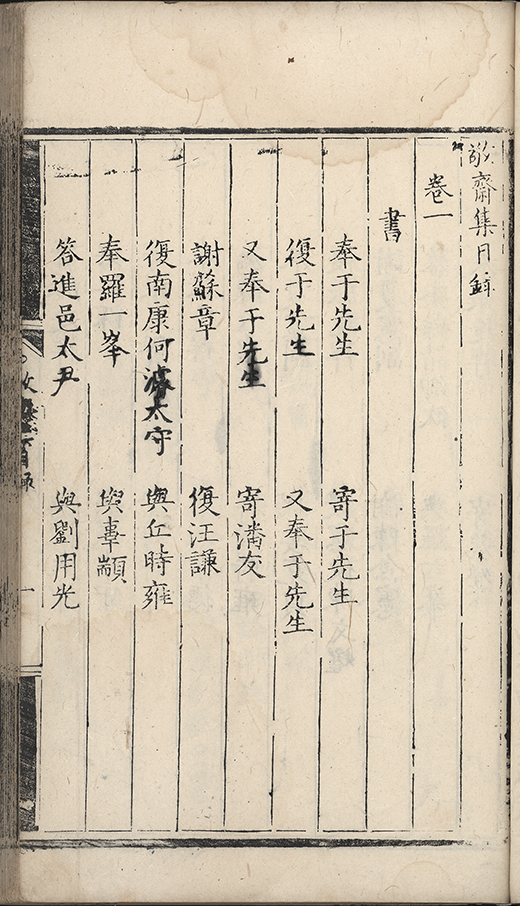 敬齋集目錄
卷一
書
奉于先生 寄于先生
復于先生 又奉于先生
又奉于先生 寄潘友
謝蘇章 復汪謙
復南康何濬太守 與丘時雍
奉羅一峯 與婁顓
答進邑太尹 與劉用光
敬齋目錄 一